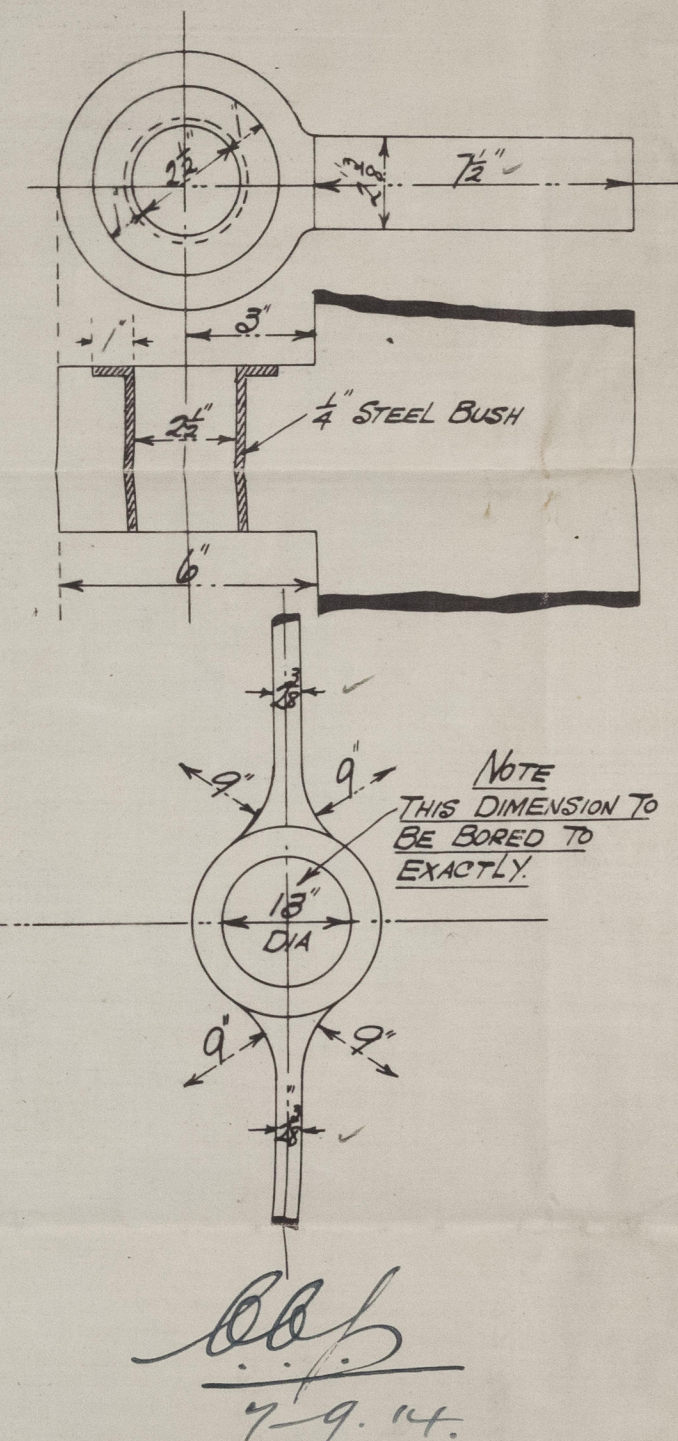 1"
2 1/2"
1"
2 3/8"
7 1/2"
3"
1"
2 1/2"
1/4" STEEL BUSH
6"
2 3/8"
9"
9"
NOTE
THIS DIMENSION TO
BE BORED TO
EXACTLY.
13"
DIA
9"
9"
2 3/8"
7-9.14.